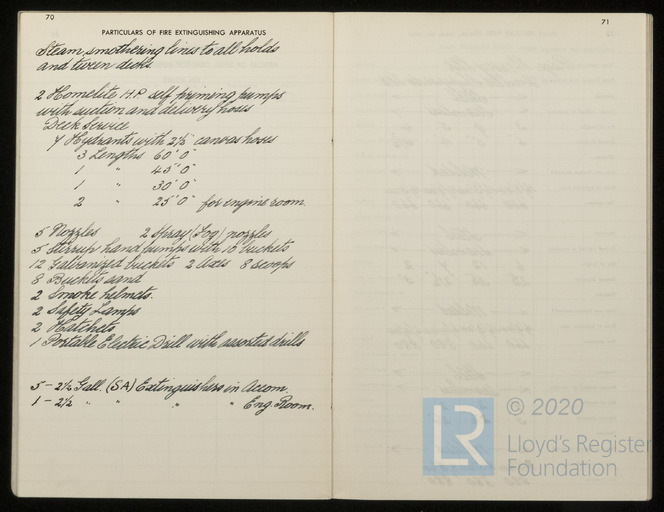 70
PARTICULARS OF FIRE EXTINGUISHING APPARATUS
Steam smothering lines to all holds
and tween decks.
2 Homelite H.P self priming pumps
with suction and delivery hoses
Deck Service
Hydrants with 2½" canvas hoses
3 Lengths 60' 0"
1 " 45' 0"
1 " 30' 0"
2 " 25' 0" for engine room.
5 Nozzles 2 Spray (Fog) nozzles
5 Stirrup hand pumps with 10 buckets
12 Galvanized buckets 2 Axes 8 scoops
8 Buckets sand
2 Smoke helmets.
2 Safety Lamps
2 Hatchets
1 Portable Electric Drill with assorted drills
5 - 2½ Gall. (SA) Extinguishers in Accom
1 - 2½ " " " " Eng. Room.
71
LR
© 2020
Lloyd's Register
Foundation